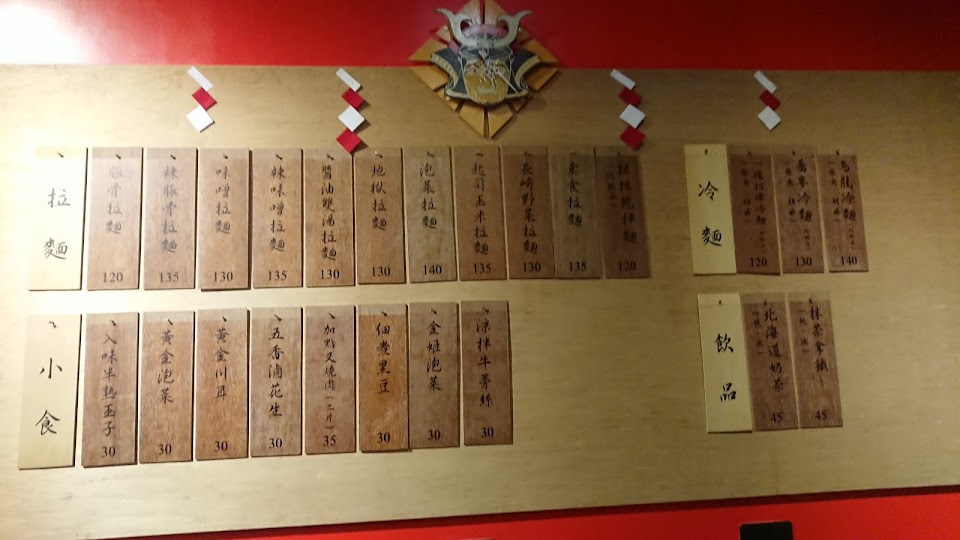 拉麵
豚骨拉麵 120
辣豚骨拉麵 135
味噌拉麵 130
辣味噌拉麵 135
醬油雞湯拉麵 130
地獄拉麵 130
泡菜拉麵 140
起司玉米拉麵 135
長崎野菜拉麵 130
素食拉麵 135
担担乾拌麵 120
冷麵
120
蕎麥冷麵 130
烏龍冷麵 140
小食
入味半熟玉子 30
黃金泡菜 30
黃金川耳 30
五香滷花生 30
加點叉燒肉(二片) 35
佃煮黑豆 30
金姬泡菜 30
涼拌牛蒡絲 30
飲品
北海道奶茶 45
抹茶拿鐵 45